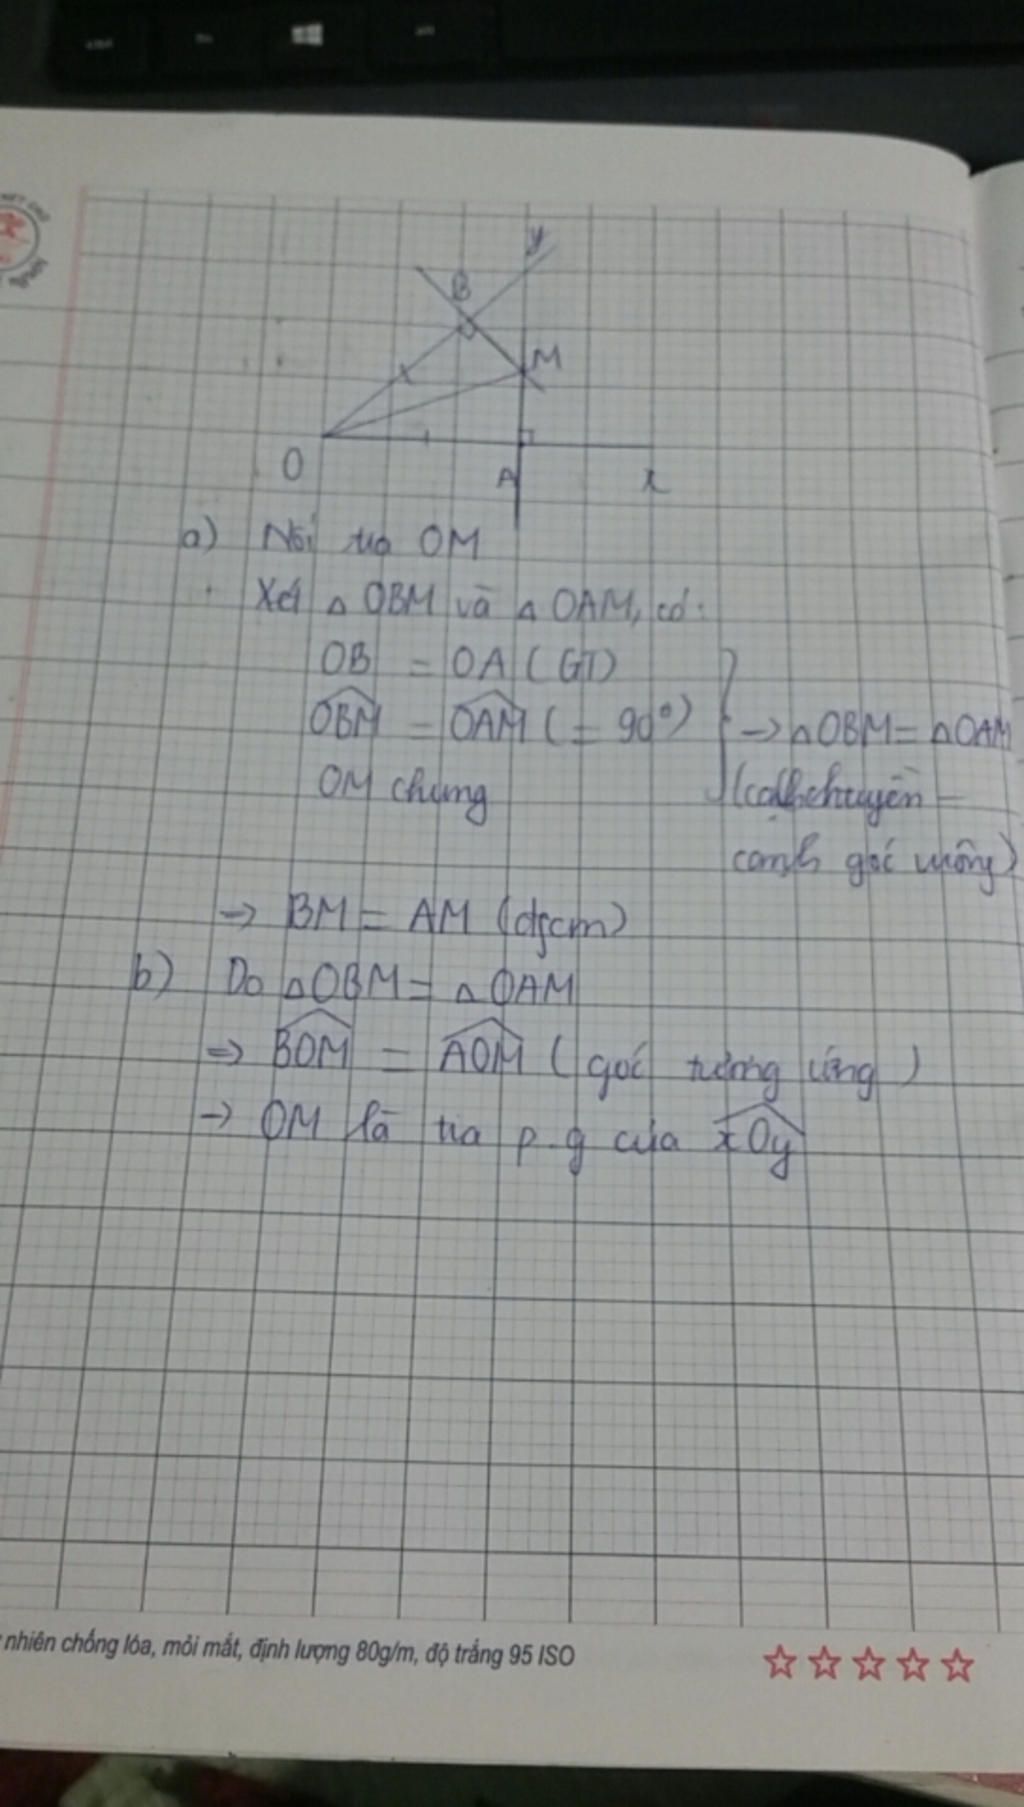 y
B
M
O
A
x
a) Nối tia OM
Xét △ OBM và △ OAM, có:
OB = OA (GT)
OBM = OAM (= 90°) → △OBM = △OAM
OM chung (cạnh huyền –
cạnh góc vuông)
→ BM = AM (đpcm)
b) Do △OBM = △OAM
⇒ BOM = AOM (góc tương ứng)
→ OM là tia p.g của xOy
nhiên chống lóa, mỏi mắt, định lượng 80g/m, độ trắng 95 ISO